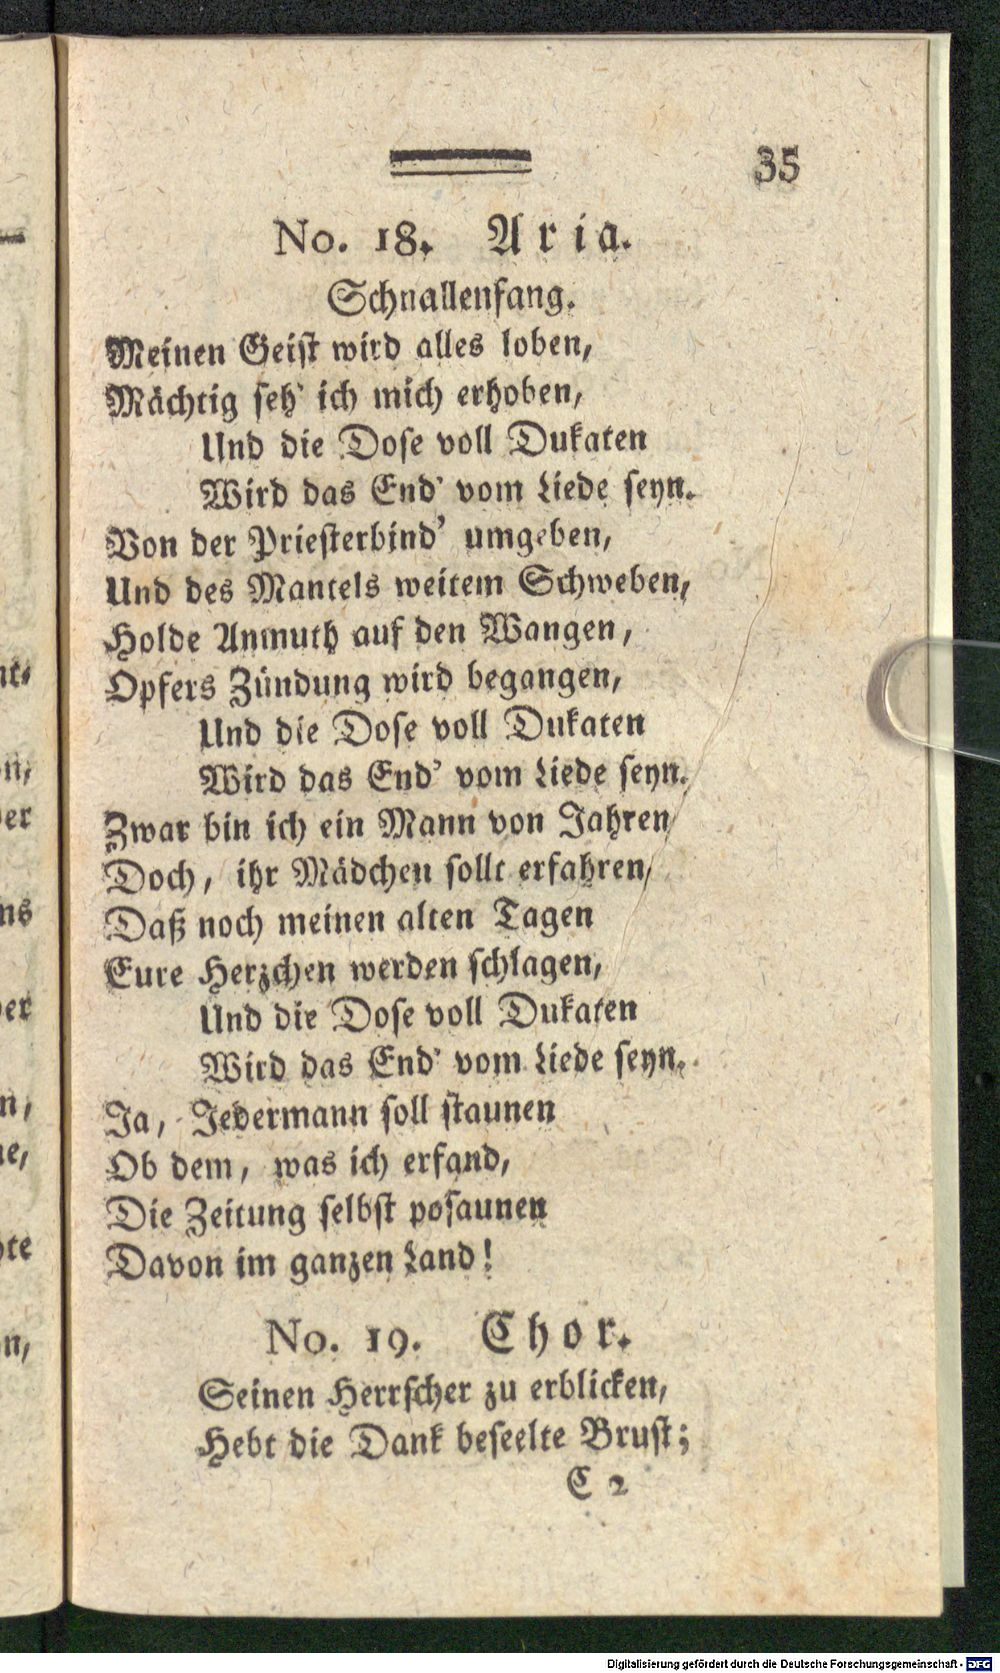 35
No. 18. Aria.
Schnallenfang.
Meinen Geist wird alles loben,
Mächtig seh' ich mich erhoben,
Und die Dose voll Dukaten
Wird das End' vom Liede seyn.
Von der Priesterbind' umgeben,
Und des Mantels weitem Schweben,
Holde Anmuth auf den Wangen,
Opfers Zündung wird begangen,
Und die Dose voll Dukaten
Wird das End' vom Liede seyn.
Zwar bin ich ein Mann von Jahren
Doch, ihr Mädchen sollt erfahren,
Daß noch meinen alten Tagen
Eure Herzchen werden schlagen,
Und die Dose voll Dukaten
Wird das End' vom Liede seyn.
Ja, Jedermann soll staunen
Ob dem, was ich erfand,
Die Zeitung selbst posaunen
Davon im ganzen Land!
No. 19. Chor.
Seinen Herrscher zu erblicken,
Hebt die Dank beseelte Brust;
C 2
Digitalisierung gefördert durch die Deutsche Forschungsgemeinschaft - DFG